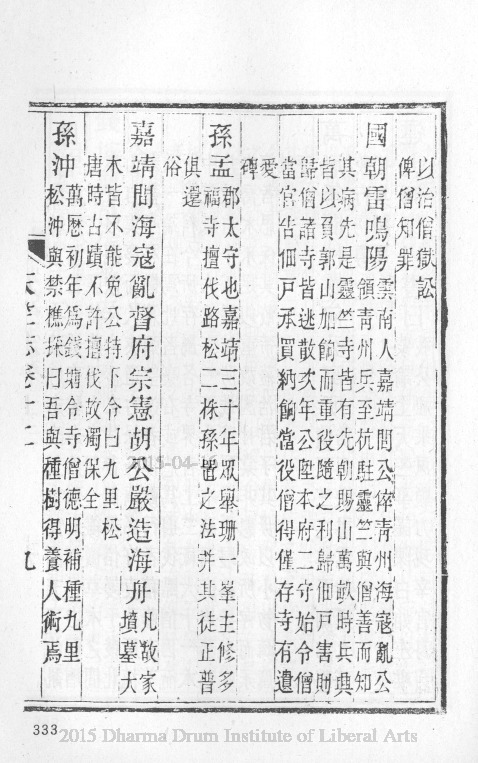 以治僧獄訟
俾僧知罪
國朝雷鳴陽雲南人嘉靖間公倅青州海寇亂公
領青州兵至杭駐靈竺與僧善而知
其病先是靈竺寺皆有先朝賜山萬畝時兵興
皆以負郭山加餉而重役隨之利歸佃戸害則
歸僧諸寺皆逃散次年公陞本府二守始令僧
當官告佃戸承買納餉當役僧得僅存寺有遺
愛
碑
孫孟郡太守也嘉靖三十年眾舉珊二峯主修多
福寺擅伐路松二株孫置之法并其徒正普
俱還
俗
嘉靖間海寇亂督府宗憲胡公嚴造海舟凡故家
墳墓大
木皆不能免公持下令曰九里松
唐時古蹟不許擅伐故獨保全
孫沖萬曆初年為錢塘令寺僧德明補種九里
松沖與禁樵採曰吾與種樹得養人術焉
天竺志卷十二
九
333
2015-04-
2015 Dharma Drum Institute of Liberal Arts